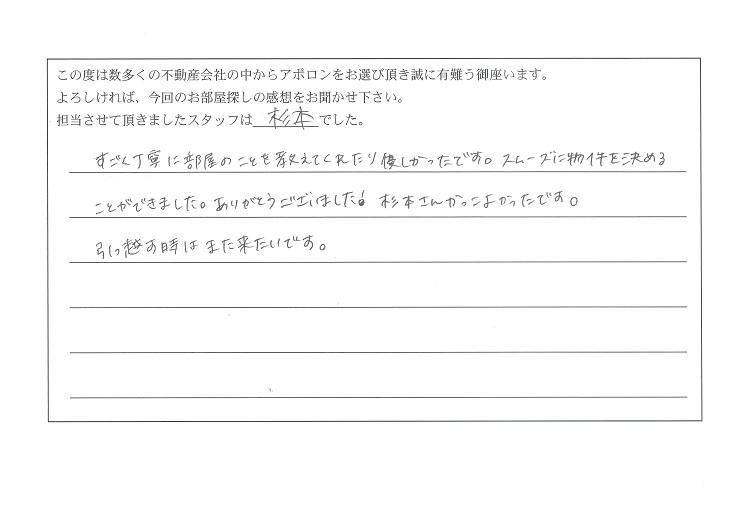 この度は数多くの不動産会社の中からアポロンをお選び頂き誠に有難う御座います。
よろしければ、今回のお部屋探しの感想をお聞かせ下さい。
担当させて頂きましたスタッフは 杉本 でした。
すごく丁寧に部屋のことを教えてくれたり優しかったです。スムーズに物件を決める
ことができました。ありがとうございました! 杉本さんかっこよかったです。
引っ越す時はまた来たいです。